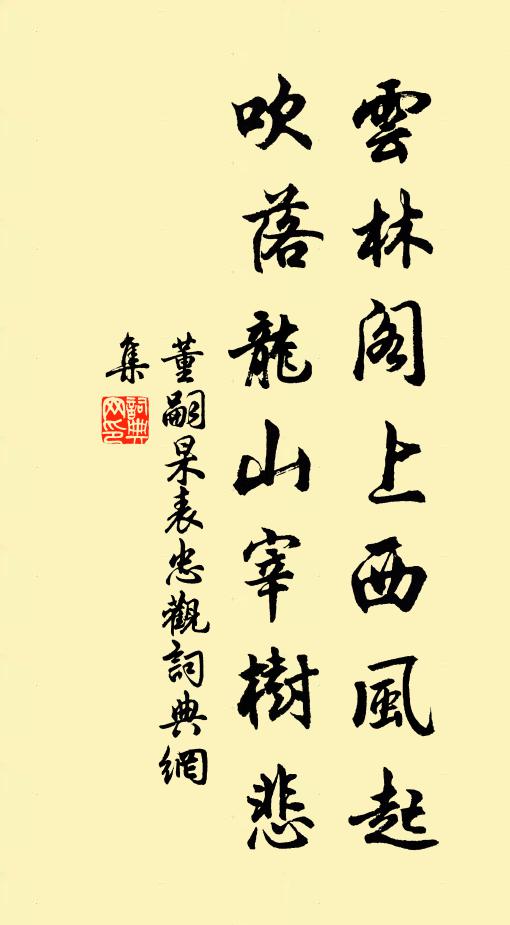 雲林閣上西風起
吹落龍山宰樹悲
董嗣杲表忠觀詞典網
集
詞典網印